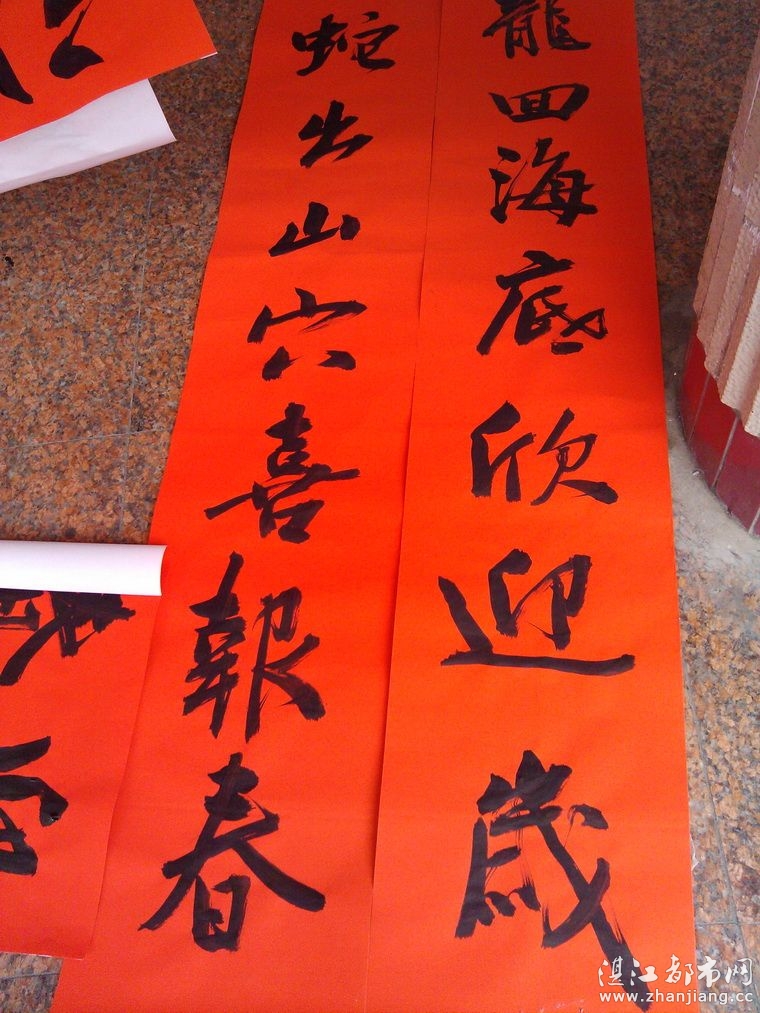 龍回海底欣迎歲
蛇出山穴喜報春
湛江都市网
www.zhanjiang.cc